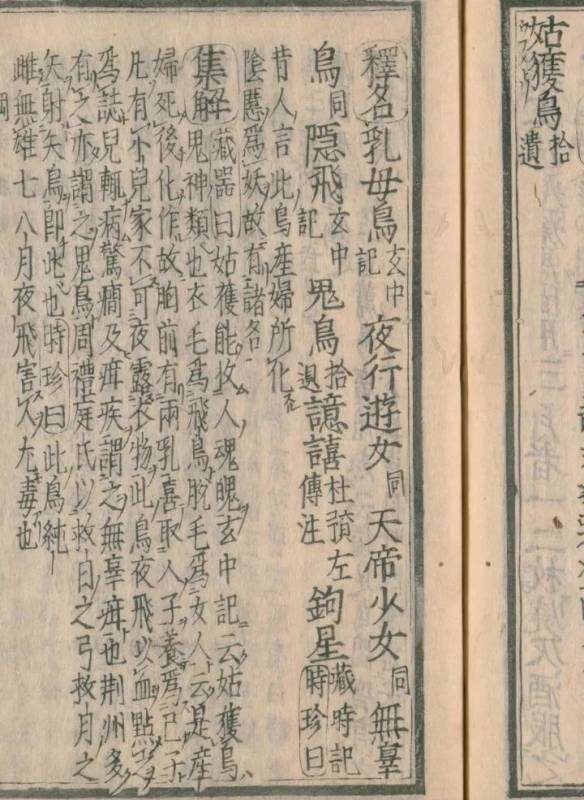 姑獲鳥拾遺
釋名乳母鳥玄中記夜行遊女同天帝少女同無辜
鳥同隱飛玄中記鬼鳥拾遺譩譆杜預左傳注鉤星歳時記時珍曰
昔人言此鳥産婦所化
陰慝爲妖故有諸名
集解藏器曰姑獲能收人魂魄玄中記云姑獲鳥
鬼神類也衣毛爲飛鳥脫毛爲女人云是産
婦死後化作故胸前有兩乳喜取人子養爲己子
凡有小兒家不可夜露衣物此鳥夜飛以血點之
爲誌兒輒病驚癇及疳疾謂之無辜疳也荆州多
有之亦謂之鬼鳥周禮庭氏以救日之弓救月之
矢射夭鳥卽此也時珍曰此鳥純
雌無雄七八月夜飛害人尤毒也